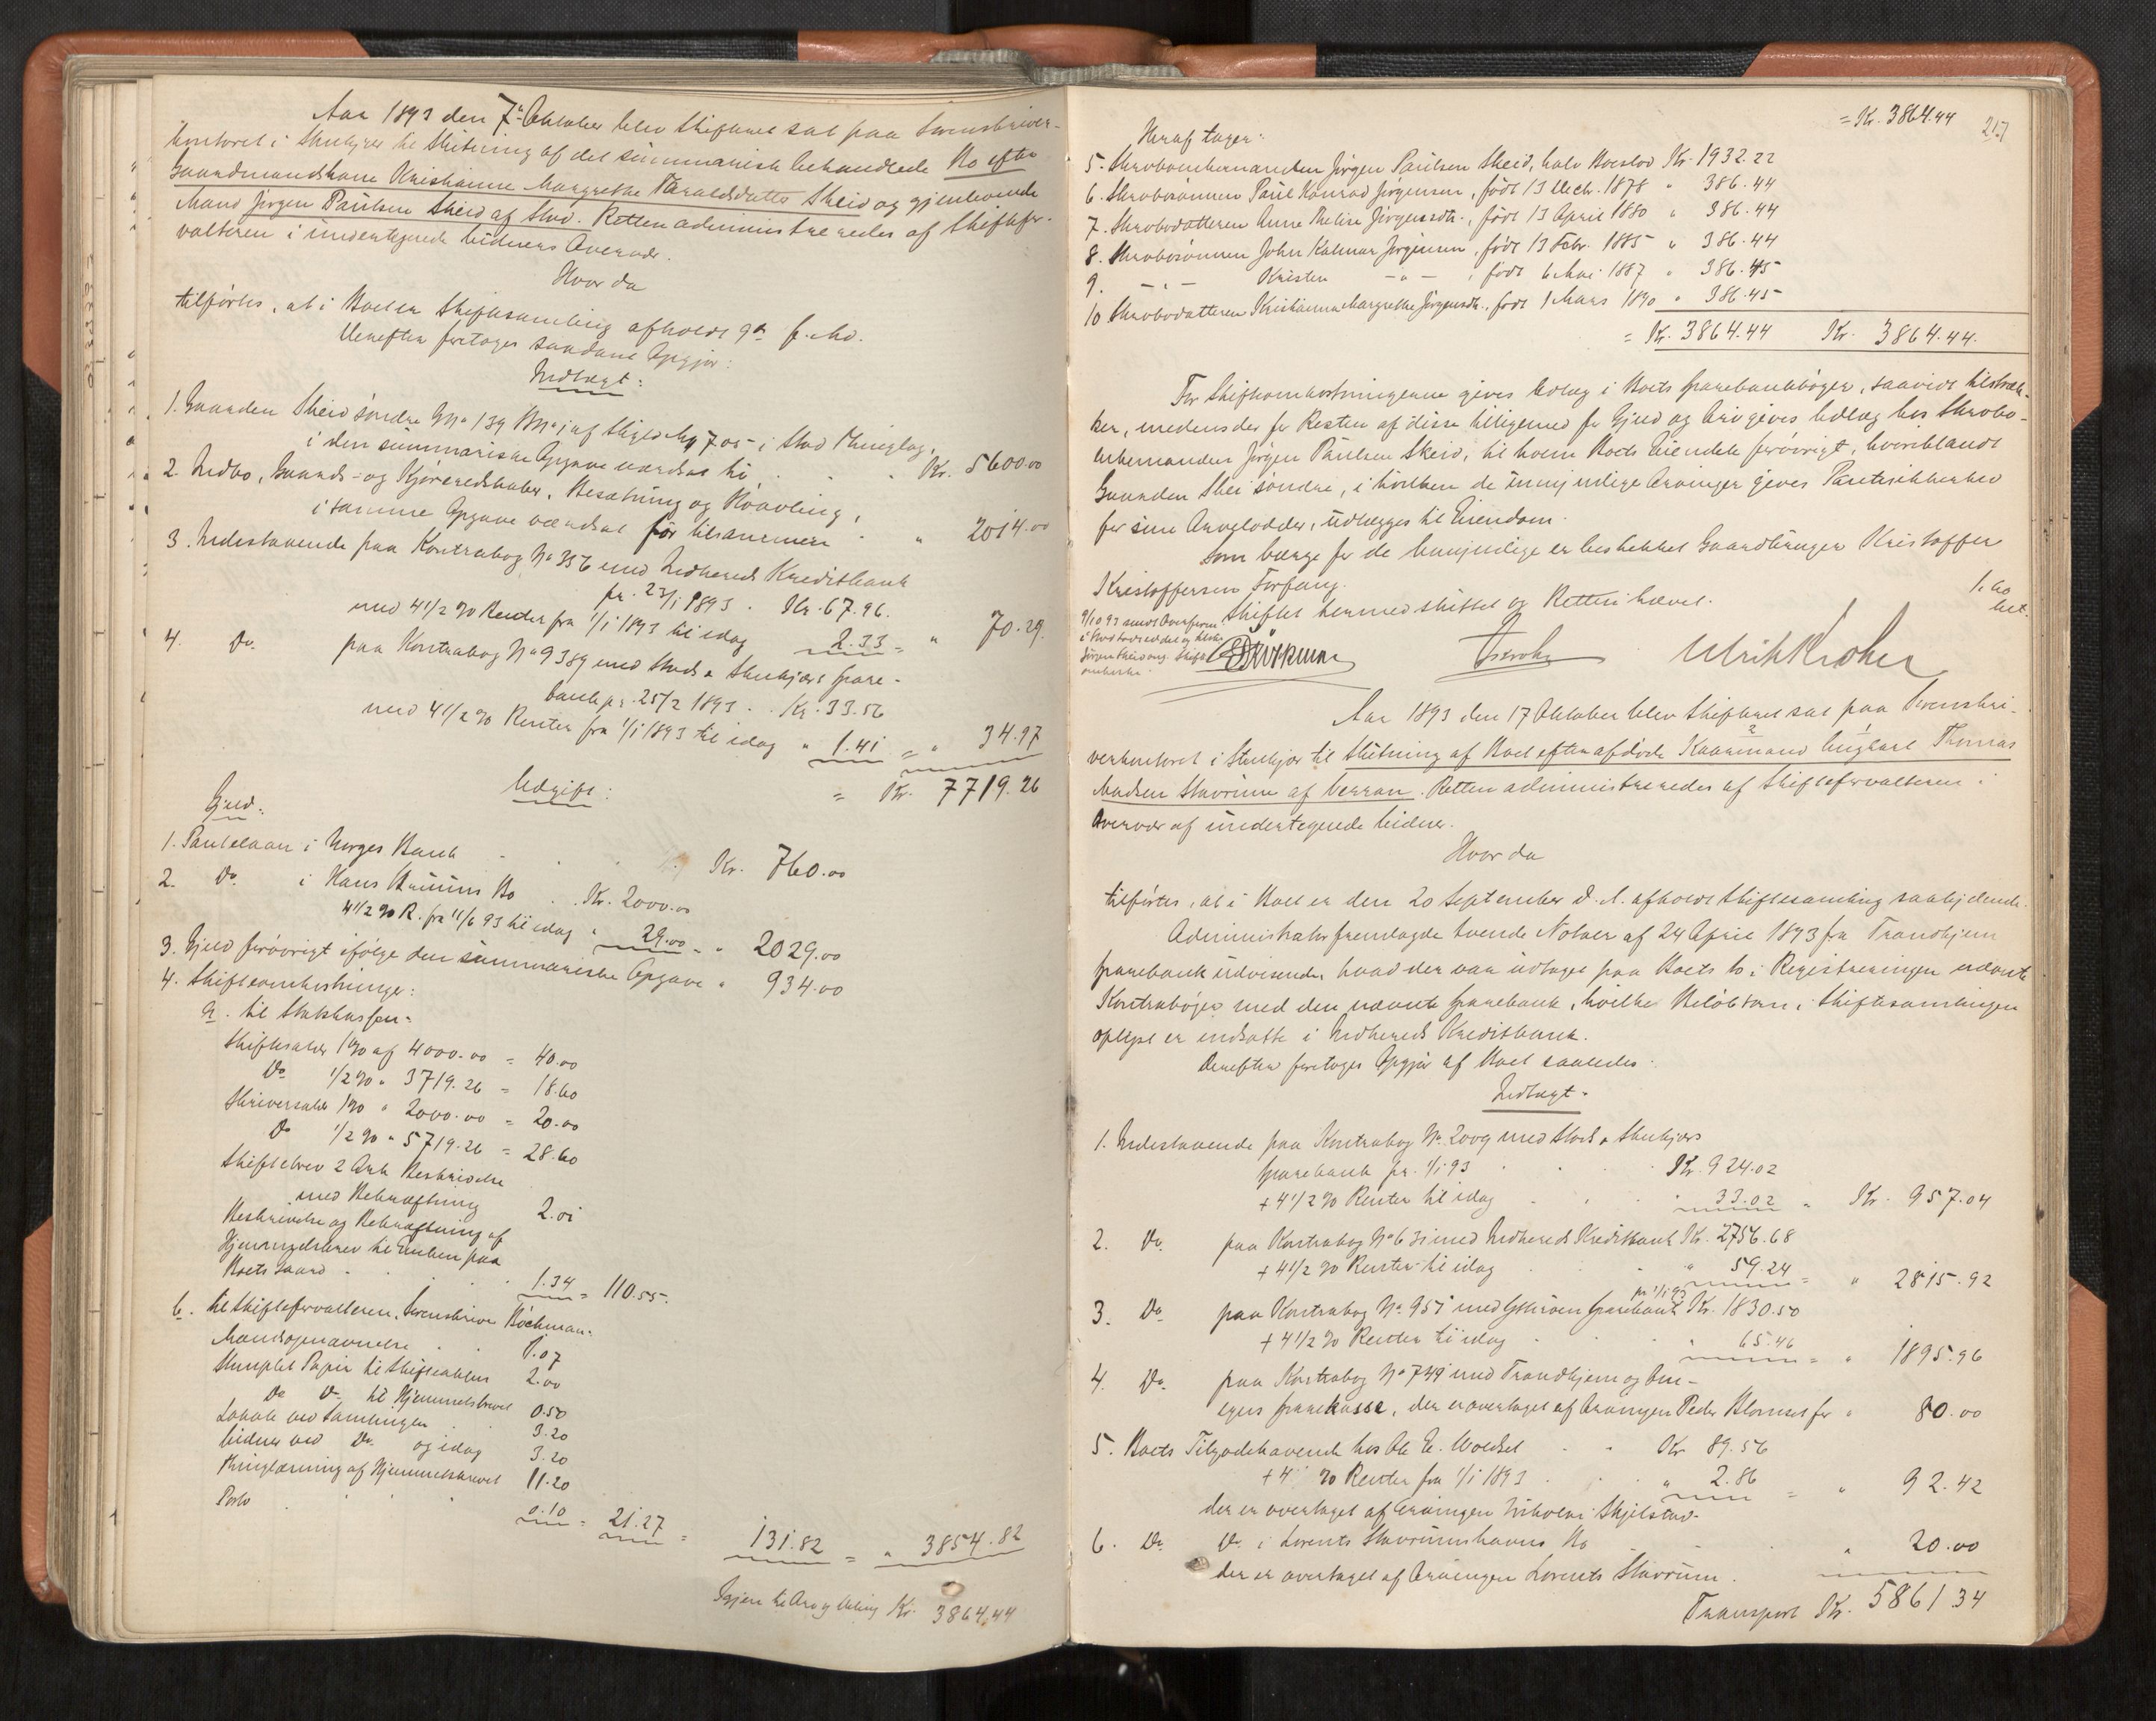 Aar 1893 den 7de Oktober blev Skifteret sat paa Sorenskriver-
kontoret i Stenkjær til Slutning af det summarisk behandlede Bo efter
Gaardmandskone Kristianne Margrethe Taraldsdatter Skeid og gjenlevende
Mand Jørgen Paulsen Skeid af Stod. Retten administreredes af Skiftefor-
valteren i undertegnede Vidners Overvær.
Hvorda
tilførtes, at i Boet er Skiftesamling afholdt 9de f. Md.
Derefter foretoges saadant Opgjør:
Indtægt:
1. Gaarden Skeid søndre GNo 139 BNo 1 af Skyld Mk 7 05 i Stod Thinglag,
i den summariske Opgave værdsat til . . . Kr. 5600.00
2. Indbo, Gaards- og Kjøreredskaber, Besætning og Avling,
i samme Opgave værdsat før tilsammen . " 2014.00
3. Indestaaende paa Kontrabog No 356 med Indherreds Kreditbank
pr. 23/1 1893 . Kr. 67.96.
med 4 1/2 % Renter fra 1/1 1893 til idag 2.33 = " 70.29.
4. Do. paa Kontrabog No 9389 med Stods & Stenkjærs Spare-
bank pr. 25/2 1893 . . Kr. 33.56
med 4 1/2 % Renter fra 1/1 1893 til idag " 1.41 = " 34.97
= Kr. 7719.26
Udgift:
Gjæld:
1. Pantelaan i Norges Bank . . . Kr. 760.00
2. Do. i Hans Bruuns Bo . . Kr. 2000.00
4 1/2 % R. fra 11/6 93 til idag " 29.00 = " 2029.00
3. Gjæld forøvrigt ifølge den summariske Opgave " 934.00
4. Skifteomkostninger:
a. til Statskassen:
Skiftesalær 1 % af 4000.00 = 40.00
Do 1/2 % " 3719.26 = 18.60
Skriversalær 1 % " 2000.00 = 20.00
Do 1/2 % " 5719.26 = 28.60
Skiftebrev 2 Ark Beskrivelse
med Bekræftning 2.01
Beskrivelse og Bekræftning af
Hjemmelsbrev til Enken paa
Boets Gaard . . . . 1.34 = 110.55.
b. til Skifteforvalteren, Sorenskriver Böckman:
Mandsopnævnelse . . 1.07
Stemplet Papir til Skifteakten 2.00
Do Do. til Hjemmelsbrevet 0.50
Lokale ved Samlingen . 3.20
Vidner ved Do. og idag 3.20
Thinglæsning af Hjemmelsbrevet 11.20
Porto . . . . 0.10 = 21.27 = 131.82 = " 3854.82
Igjen til Arv og Deling Kr. 3864.44
= Kr. 3864.44
217
Heraf tager:
5. Skrobo enkemanden Jørgen Paulsen Skeid, halv Boeslod Kr. 1932.22
6. Skrobosønnen Paul Konrad Jørgensen, født 13 Decbr. 1878 " 386.44
7. Skrobodatteren Anne Theline Jørgensdtr., født 13 April 1880 " 386.44
8. Skrobosønnen Johan Kalmar Jørgensen, født 13 Febr. 1885 " 386.44
9. - " - Kristen - " - , født 6 Mai 1887 " 386.45
10 Skrobodatteren Kristianna Margrethe Jørgensdtr., født 1 Mars 1890 " 386.45
= Kr. 3864.44 Kr. 3864.44.
For Skifteomkostningerne gives Udlæg i Boets Sparebankbøger, saavidt tilstræk-
ker, medens der for Resten af disse tilligemed for Gjæld og Arv gives Udlæg hos Skrobo-
enkemanden Jørgen Paulsen Skeid, til hvem Boets Eiendele forøvrigt, hvoriblandt
Gaarden Skei søndre, i hvilken de umyndige Arvinger gives Pantesikkerhed
for sine Arvelodder, udlægges til Eiendom.
Som Værge for de umyndige er beskikket Gaardbruger Kristoffer
Kristoffersen Forfang.
Skiftet hermed sluttet og Retten hævet.
1.60
bet.
9/10 93 sendt
Böckman
Ulrik Kroher
Aar 1893 den 17 Oktober blev Skifteret sat paa Sorenskri-
verkontoret i Stenkjær til Slutning af Boet efter afdøde Kaarmand Ungkarl Thomas
Madsen Stavrum af Verran. Retten administreredes af Skifteforvalteren i
Overvær af undertegnede Vidner.
Hvorda
tilførtes, at i Boet er den 20 September d. A. afholdt Skiftesamling saalydende.
Administrator fremlagde tvende Notaer af 24 April 1893 fra Trondhjems
Sparebank udvisende hvad der var udtaget paa Boets to i Registreringen nævnte
Kontrabøger med den nævnte Sparebank, hvilke Beløb som i Skiftesamlingen
oplyst er indsatte i Indherreds Kreditbank.
Derefter foretoges Opgjør af Boet saaledes:
Indtægt:
1. Indestaaende paa Kontrabog No. 2009 med Stods & Stenkjærs
Sparebank pr. 1/1 93 . . . Kr. 924.02
+ 4 1/2 % Renter til idag . . " 33.02 = Kr. 957.04
2. Do. paa Kontrabog No 631 med Indherreds Kreditbank Kr. 2756.68
+ 4 1/2 % Renter til idag . . " 59.24 = " 2815.92
3. Do paa Kontrabog No. 951 med Sparebank pr 1/1 93 Kr. 1830.50
+ 4 1/2 % Renter til idag . . " 65.46 = " 1895.96
4. Do. paa Kontrabog No 749 med Trondhjem og Om-
egns Sparekasse, der er overtaget af Arvingen Peder Blomset for " 80.00
5. Boets Tilgodehavende hos Ole E. Moldsel . . Kr 89.56
+ 4 % Renter fra 1/1 1893 . . " 2.86 = " 92.42
der er overtaget af Arvingen Skjelstad.
6. Do. Do. i Lorents Stavrumshaugs Bo . . " 20.00
der er overtaget af Arvingen Lorents Stavrum.
Transport Kr. 5861 34